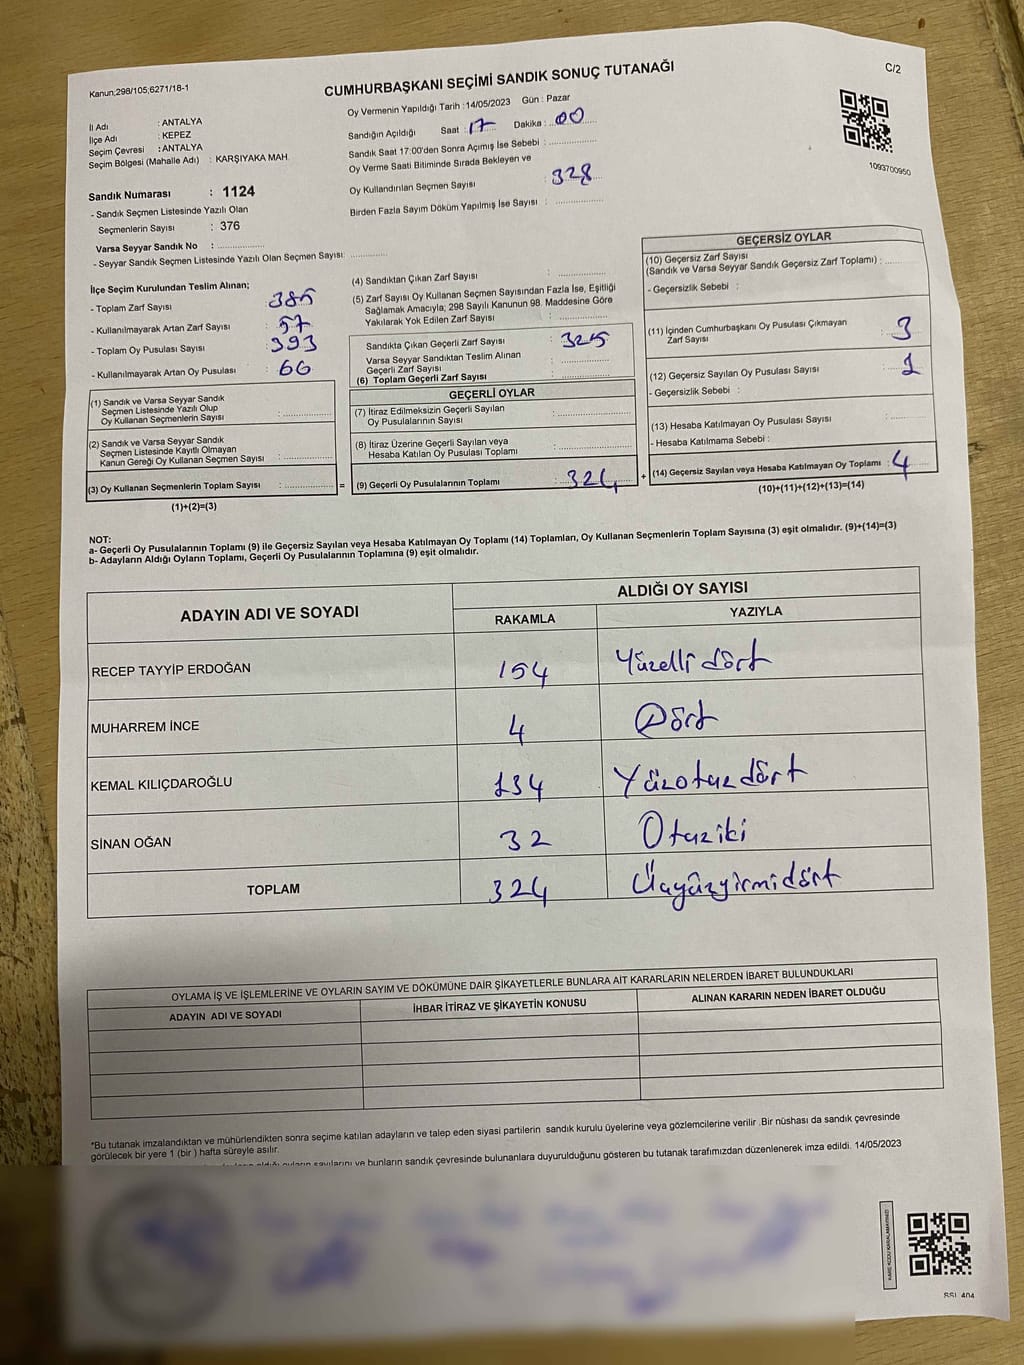 Kanun;298/105;6271/18-1
CUMHURBAŞKANI SEÇİMİ SANDIK SONUÇ TUTANAĞI
C/2
İl Adı : ANTALYA
İlçe Adı : KEPEZ
Seçim Çevresi : ANTALYA
Seçim Bölgesi (Mahalle Adı) : KARŞIYAKA MAH.
Sandık Numarası : 1124
- Sandık Seçmen Listesinde Yazılı Olan
Seçmenlerin Sayısı : 376
Varsa Seyyar Sandık No :
- Seyyar Sandık Seçmen Listesinde Yazılı Olan Seçmen Sayısı:
Oy Vermenin Yapıldığı Tarih : 14/05/2023 Gün : Pazar
Sandığın Açıldığı Saat : 17 Dakika : 00
Sandık Saat 17:00'den Sonra Açımış İse Sebebi :
Oy Verme Saati Bitiminde Sırada Bekleyen ve
Oy Kullandırılan Seçmen Sayısı : 328
Birden Fazla Sayım Döküm Yapılmış İse Sayısı :
1093700950
İlçe Seçim Kurulundan Teslim Alınan;
- Toplam Zarf Sayısı : 385
- Kullanılmayarak Artan Zarf Sayısı : 57
- Toplam Oy Pusulası Sayısı : 393
- Kullanılmayarak Artan Oy Pusulası : 66
(1) Sandık ve Varsa Seyyar Sandık
Seçmen Listesinde Yazılı Olup
Oy Kullanan Seçmenlerin Sayısı :
(2) Sandık ve Varsa Seyyar Sandık
Seçmen Listesinde Kayıtlı Olmayan
Kanun Gereği Oy Kullanan Seçmen Sayısı :
(3) Oy Kullanan Seçmenlerin Toplam Sayısı : =
(1)+(2)=(3)
(4) Sandıktan Çıkan Zarf Sayısı :
(5) Zarf Sayısı Oy Kullanan Seçmen Sayısından Fazla İse, Eşitliği
Sağlamak Amacıyla; 298 Sayılı Kanunun 98. Maddesine Göre
Yakılarak Yok Edilen Zarf Sayısı :
Sandıkta Çıkan Geçerli Zarf Sayısı : 325
Varsa Seyyar Sandıktan Teslim Alınan
Geçerli Zarf Sayısı :
(6) Toplam Geçerli Zarf Sayısı :
GEÇERLİ OYLAR
(7) İtiraz Edilmeksizin Geçerli Sayılan
Oy Pusulalarının Sayısı :
(8) İtiraz Üzerine Geçerli Sayılan veya
Hesaba Katılan Oy Pusulası Toplamı :
(9) Geçerli Oy Pusulalarının Toplamı : 324 +
GEÇERSİZ OYLAR
(10) Geçersiz Zarf Sayısı
(Sandık ve Varsa Seyyar Sandık Geçersiz Zarf Toplamı) :
- Geçersizlik Sebebi :
(11) İçinden Cumhurbaşkanı Oy Pusulası Çıkmayan
Zarf Sayısı : 3
(12) Geçersiz Sayılan Oy Pusulası Sayısı : 1
- Geçersizlik Sebebi :
(13) Hesaba Katılmayan Oy Pusulası Sayısı :
- Hesaba Katılmama Sebebi :
(14) Geçersiz Sayılan veya Hesaba Katılmayan Oy Toplamı : 4
(10)+(11)+(12)+(13)=(14)
NOT:
a- Geçerli Oy Pusulalarının Toplamı (9) ile Geçersiz Sayılan veya Hesaba Katılmayan Oy Toplamı (14) Toplamları, Oy Kullanan Seçmenlerin Toplam Sayısına (3) eşit olmalıdır. (9)+(14)=(3)
b- Adayların Aldığı Oyların Toplamı, Geçerli Oy Pusulalarının Toplamına (9) eşit olmalıdır.
ADAYIN ADI VE SOYADI
ALDIĞI OY SAYISI
RAKAMLA YAZIYLA
RECEP TAYYİP ERDOĞAN 154 Yüzelli dört
MUHARREM İNCE 4 Dört
KEMAL KILIÇDAROĞLU 134 Yüzotuz dört
SİNAN OĞAN 32 Otuziki
TOPLAM 324 Üçyüzyirmidört
OYLAMA İŞ VE İŞLEMLERİNE VE OYLARIN SAYIM VE DÖKÜMÜNE DAİR ŞİKAYETLERLE BUNLARA AİT KARARLARIN NELERDEN İBARET BULUNDUKLARI
ADAYIN ADI VE SOYADI İHBAR İTİRAZ VE ŞİKAYETİN KONUSU ALINAN KARARIN NEDEN İBARET OLDUĞU
*Bu tutanak imzalandıktan ve mühürlendikten sonra seçime katılan adayların ve talep eden siyasi partilerin sandık kurulu üyelerine veya gözlemcilerine verilir .Bir nüshası da sandık çevresinde
görülecek bir yere 1 (bir ) hafta süreyle asılır.
oyların sayılarını ve bunların sandık çevresinde bulunanlara duyurulduğunu gösteren bu tutanak tarafımızdan düzenlenerek imza edildi. 14/05/2023